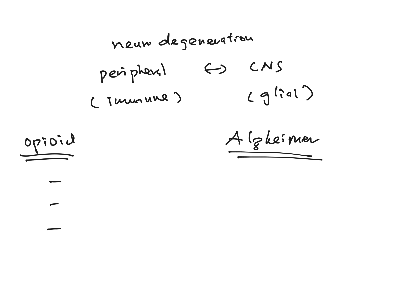 neuro degeneration
peripheral ↔ CNS
(immune) (glial)
opioid Alzheimer
–
–
–